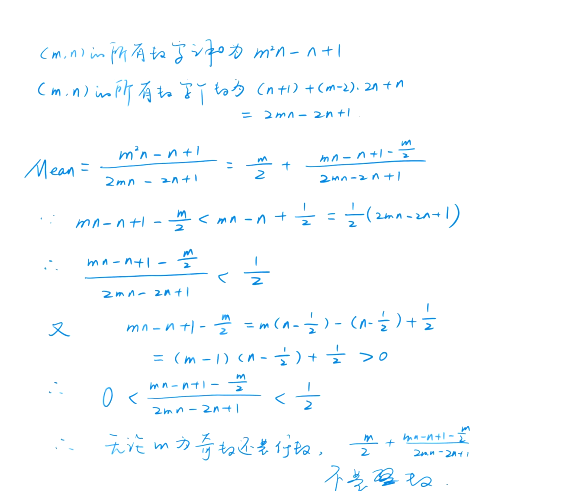 (m,n)的所有数字之和为 m²n - n + 1
(m,n)的所有数字个数为 (n+1) + (m-2)·2n + n
= 2mn - 2n + 1
Mean = (m²n - n + 1)/(2mn - 2n + 1) = m/2 + (mn - n + 1 - m/2)/(2mn - 2n + 1)
∵ mn - n + 1 - m/2 < mn - n + 1/2 = 1/2(2mn - 2n + 1)
∴ (mn - n + 1 - m/2)/(2mn - 2n + 1) < 1/2
又 mn - n + 1 - m/2 = m(n - 1/2) - (n - 1/2) + 1/2
= (m - 1)(n - 1/2) + 1/2 > 0
∴ 0 < (mn - n + 1 - m/2)/(2mn - 2n + 1) < 1/2
∴ 无论 m 为奇数还是偶数, m/2 + (mn - n + 1 - m/2)/(2mn - 2n + 1)
不是 数.